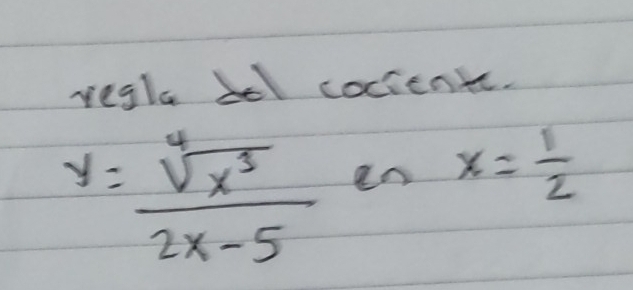 regla del cociente.
y = ⁴√x³ / 2x - 5 en x = 1/2